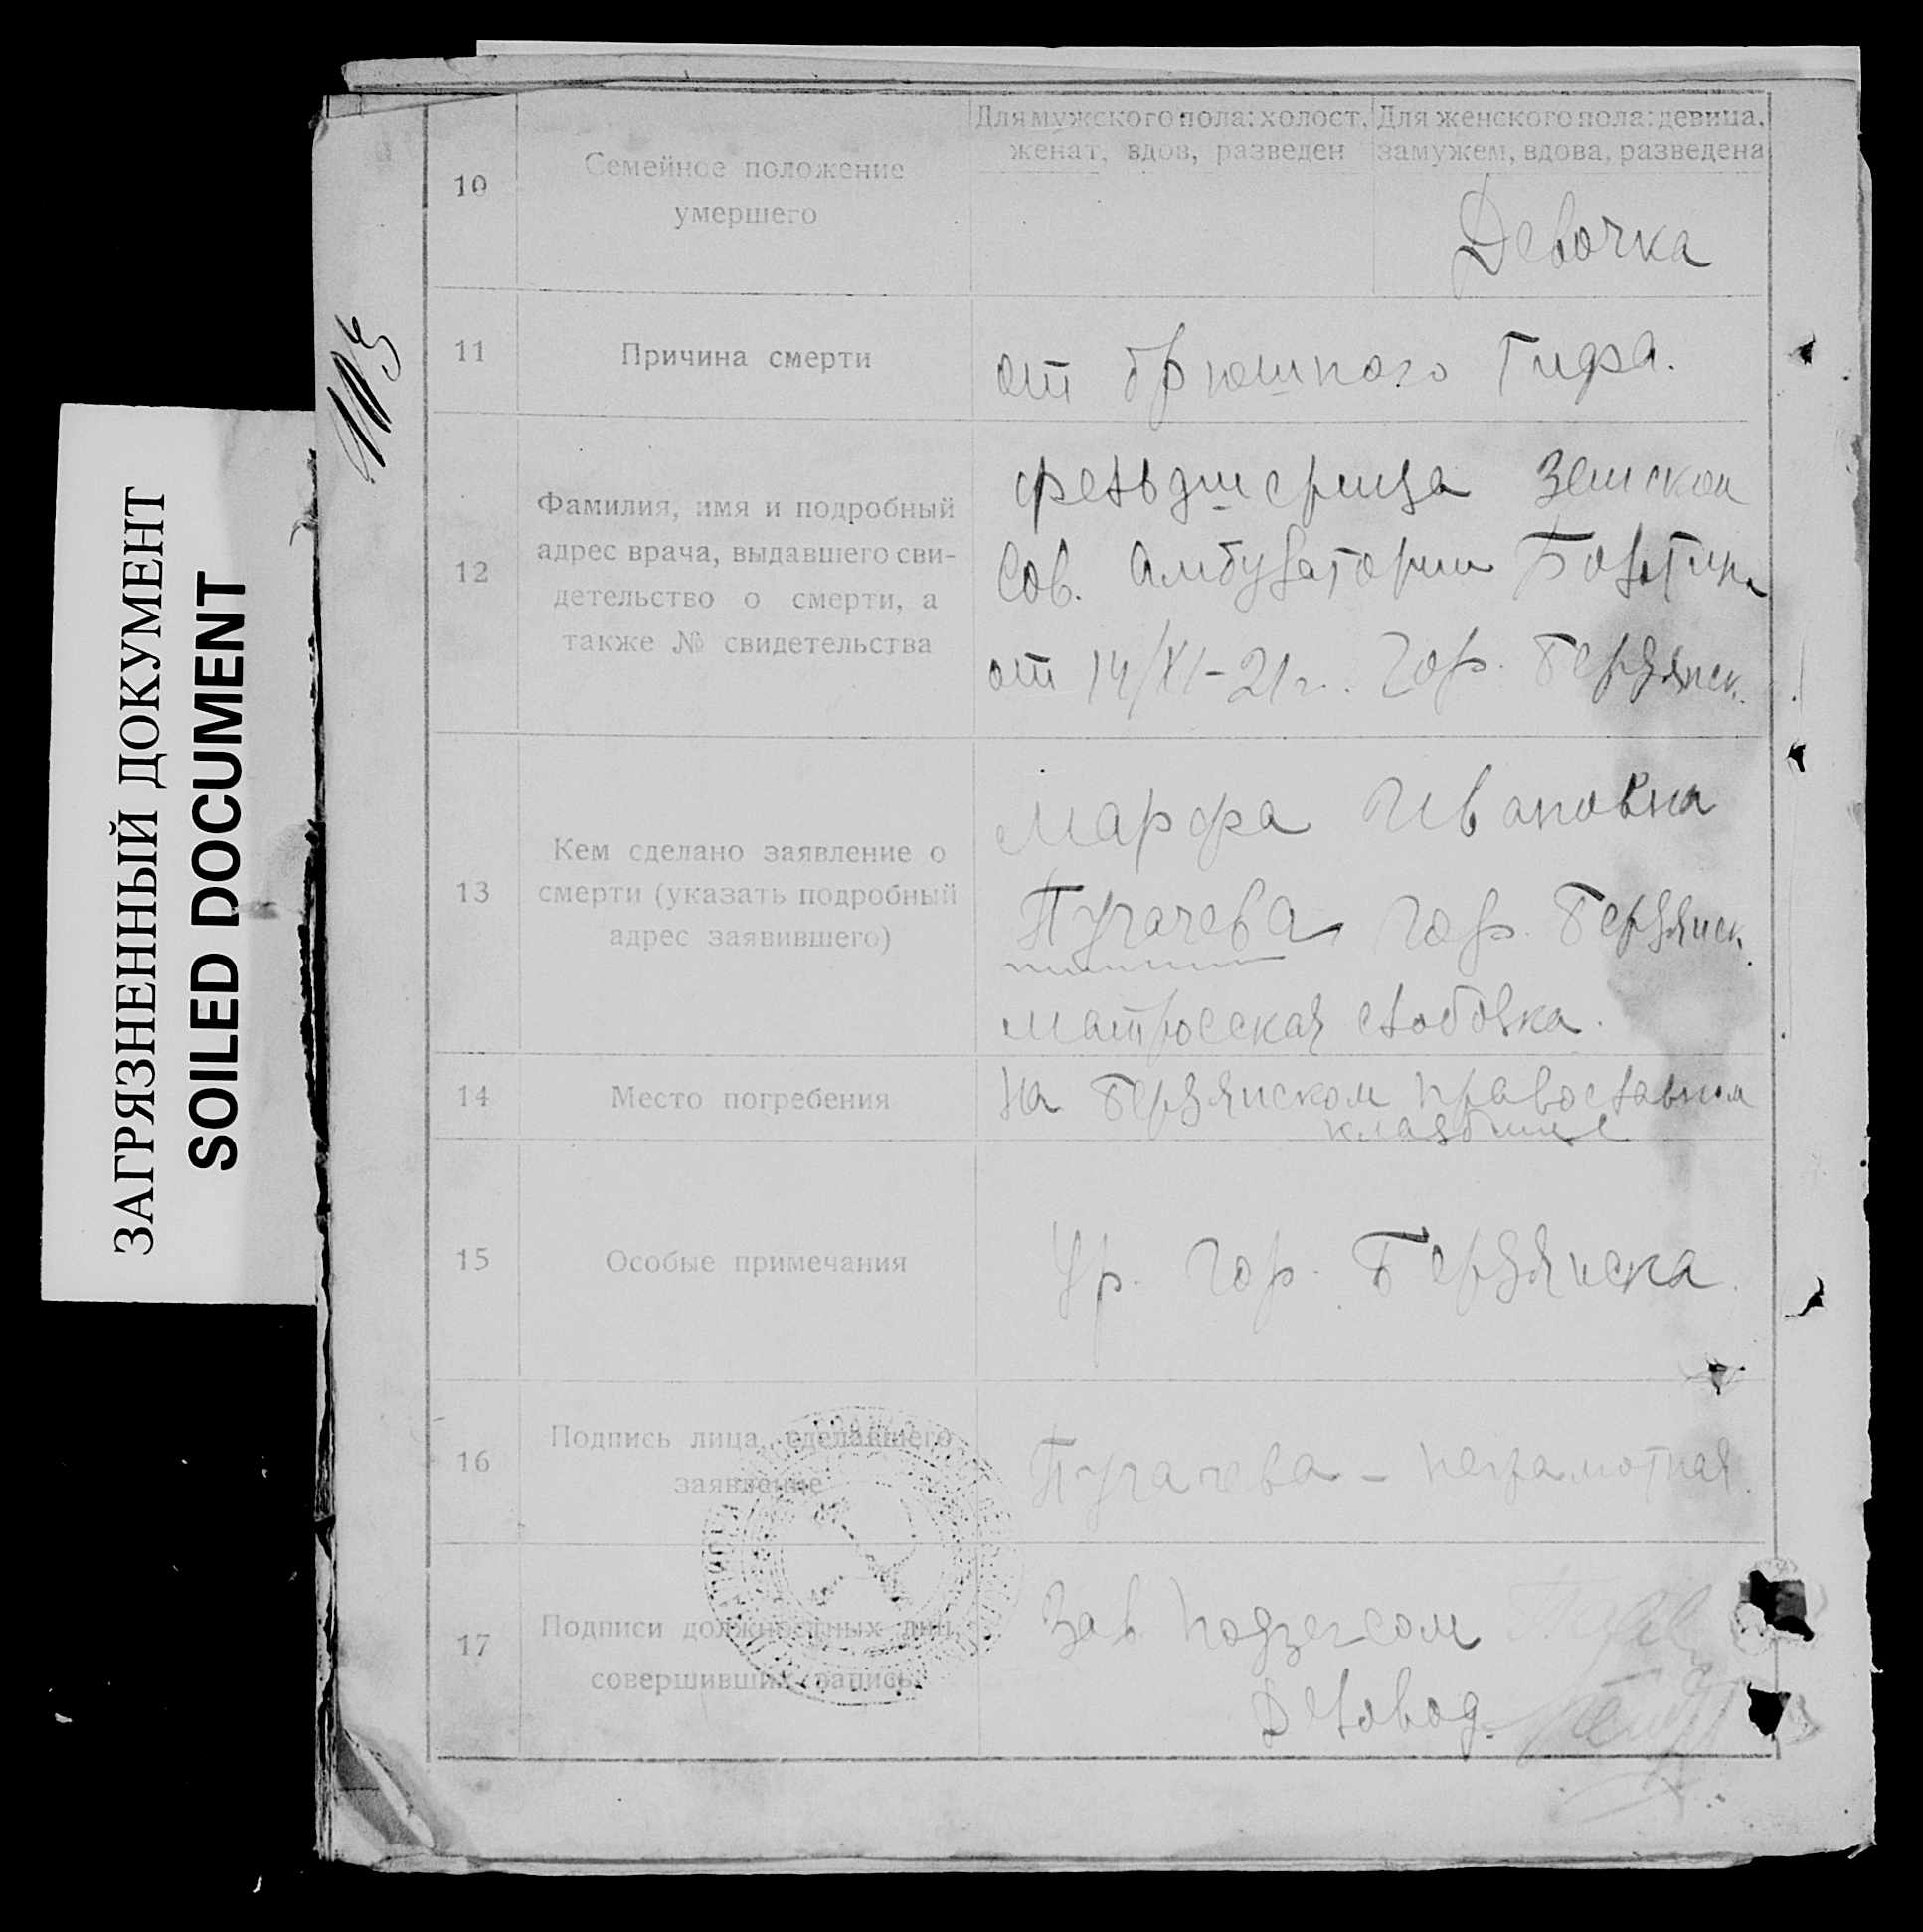 ЗАГРЯЗНЕННЫЙ ДОКУМЕНТ
SOILED DOCUMENT
10
Семейное положение
умершего
Для мужского пола: холост,
женат, вдов, разведен
Для женского пола: девица,
замужем, вдова, разведена
Девочка
11
Причина смерти
от брюшного тифа.
12
Фамилия, имя и подробный
адрес врача, выдавшего сви-
детельство о смерти, а
также № свидетельства
фельдшерица Земской
Сов. Амбулатории
от 14/XI-21 г. Гор. Бердянск.
13
Кем сделано заявление о
смерти (указать подробный
адрес заявившего)
Марфа Ивановна
Пугачева Гор. Бердянск.
матросская слободка.
14
Место погребения
на Бердянском православном
кладбище
15
Особые примечания
Ур. Гор. Бердянска.
16
Подпись лица, сделавшего
заявление
Пугачева – неграмотная.
17
Подписи должностных лиц,
совершивших запись
Зав подзагсом
Деловод.